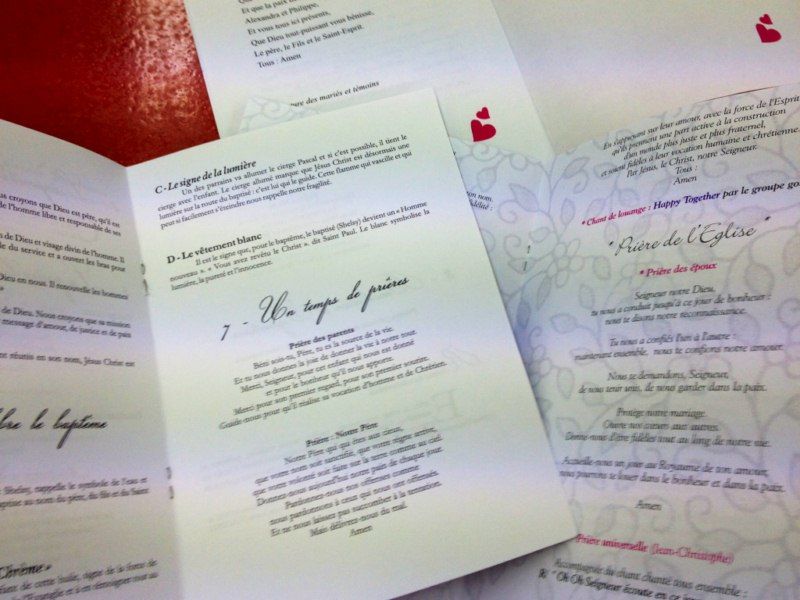 Et que la paix de
Alexandra et Philippe,
Et vous tous ici présents,
Que Dieu tout-puissant vous bénisse,
Le père, le Fils et le Saint-Esprit.
Tous : Amen
ure des mariés et témoins
us croyons que Dieu est père, qu'il est
de l'homme libre et responsable de ses
s de Dieu et visage divin de l'homme. Il
le du service et a ouvert les bras pour
Dieu en nous. Il renouvelle les hommes
de Dieu. Nous croyons que sa mission
message d'amour, de justice et de paix
réunis en son nom, Jésus Christ est
le baptême
Shelsy, rappelle le symbole de l'eau et
au nom du père, du fils et du Saint
Chrême »
de cette huile, signe de la force de
et à en témoigner tout au
C - Le signe de la lumière
Un des parrains va allumer le cierge Pascal et si c'est possible, il tient le
cierge avec l'enfant. Le cierge allumé marque que Jésus Christ est désormais une
lumière sur la route du baptisé : c'est lui qui le guide. Cette flamme qui vacille et qui
peut si facilement s'éteindre nous rappelle notre fragilité.
D - Le vêtement blanc
Il est le signe que, pour le baptême, le baptisé (Shelsy) devient un « Homme
nouveau ». « Vous avez revêtu le Christ », dit Saint Paul. Le blanc symbolise la
lumière, la pureté et l'innocence.
7 - Un temps de prières
Prière des parents
Béni sois-tu, Père, tu es la source de la vie.
Et tu nous donnes la joie de donner la vie à notre tour.
Merci, Seigneur, pour cet enfant qui nous est donné
et pour le bonheur qu'il nous apporte.
Merci pour son premier regard, pour son premier sourire.
Guide-nous pour qu'il réalise sa vocation d'homme et de Chrétien.
Prière : Notre Père
Notre Père qui es aux cieux,
que votre nom soit sanctifié, que votre règne arrive,
que votre volonté soit faite sur la terre comme au ciel.
Donnez-nous aujourd'hui notre pain de chaque jour.
Pardonnez-nous nos offenses comme
nous pardonnons à ceux qui nous ont offensés.
Et ne nous laissez pas succomber à la tentation.
Mais délivrez-nous du mal.
Amen
nom.
fidélité :
En s'appuyant sur leur amour, avec la force de l'Esprit
qu'ils prennent une part active à la construction
d'un monde plus juste et plus fraternel,
et soient fidèles à leur vocation humaine et chrétienne
Par Jésus, le Christ, notre Seigneur.
Tous :
Amen
* Chant de louange : Happy Together par le groupe go
" Prière de l'Eglise "
* Prière des époux
Seigneur notre Dieu,
tu nous a conduit jusqu'à ce jour de bonheur :
nous te disons notre reconnaissance.
Tu nous a confiés l'un à l'autre :
maintenant ensemble, nous te confions notre amour.
Nous te demandons, Seigneur,
de nous tenir unis, de nous garder dans ta paix.
Protège notre mariage.
Ouvre nos cœurs aux autres.
Donne-nous d'être fidèles tout au long de notre vie.
Accueille-nous un jour au Royaume de ton amour,
nous pourrons te louer dans le bonheur et dans la paix.
Amen
Prière universelle (Jean-Christophe)
Accompagnée du chant chanté tous ensemble :
R/ " Oh Oh Seigneur écoute en ce